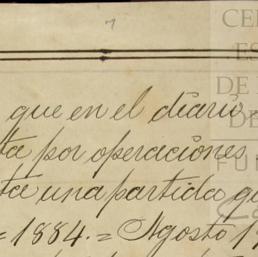 CE
ES
DE
DE
FU
que en el diario
ta por operaciones
ta una partida q
= 1884. = Agosto 1